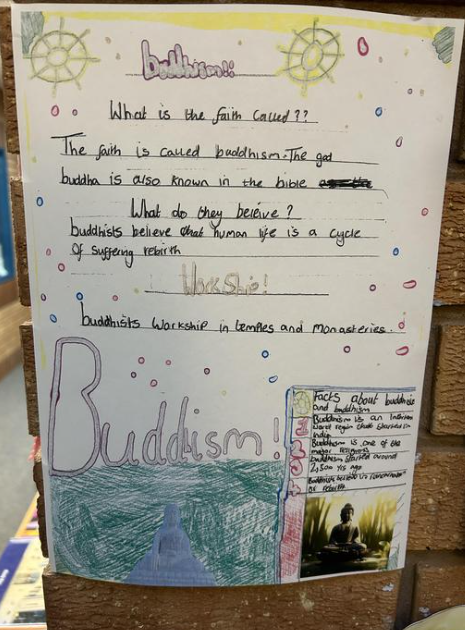 buddhism!!
What is the faith called??
The faith is called buddhism. The god
buddha is also known in the bible
What do they beleive?
buddhists believe that human life is a cycle
of suffering rebirth
WorkShip!
buddhists workship in temples and monasteries.
Buddism!
Facts about buddhists
and buddhism
Buddhism is an
that started in
India
Buddhism is one of the
major religions
buddhism started around
2,500 yrs ago
of rebirth